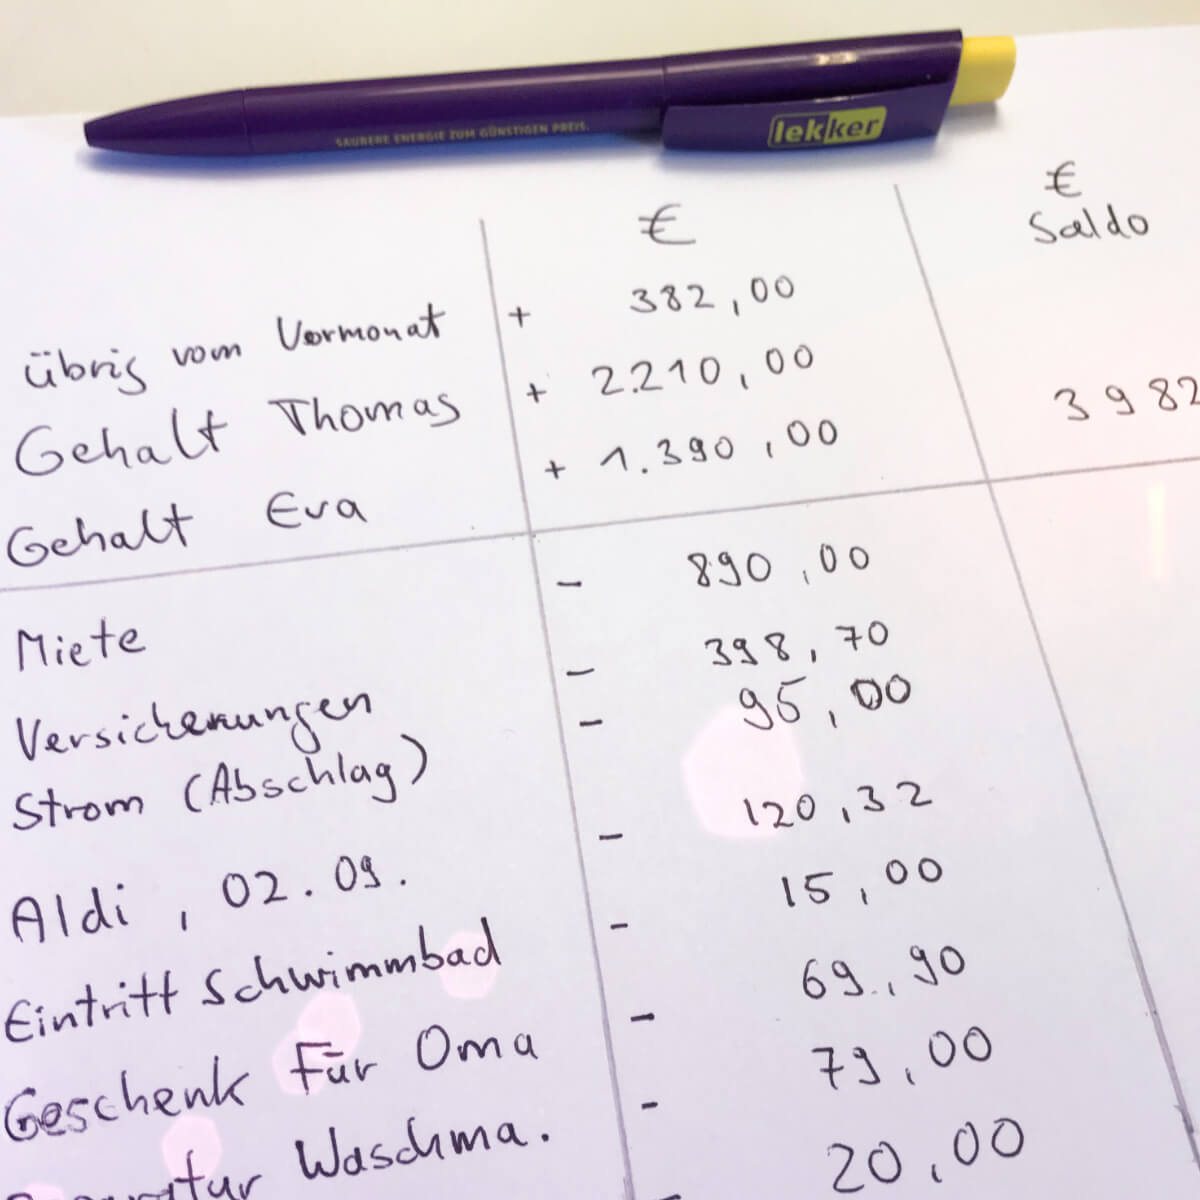 SAUBERE ENERGIE ZUM GÜNSTIGEN PREIS.
lekker
€ € Saldo
übrig vom Vormonat + 382,00
Gehalt Thomas + 2.210,00
Gehalt Eva + 1.390,00 3982
Miete - 890,00
Versicherungen - 398,70
Strom (Abschlag) - 95,00
Aldi, 02.09. - 120,32
Eintritt Schwimmbad - 15,00
Geschenk Für Oma - 69,90
Waschma. - 79,00
- 20,00